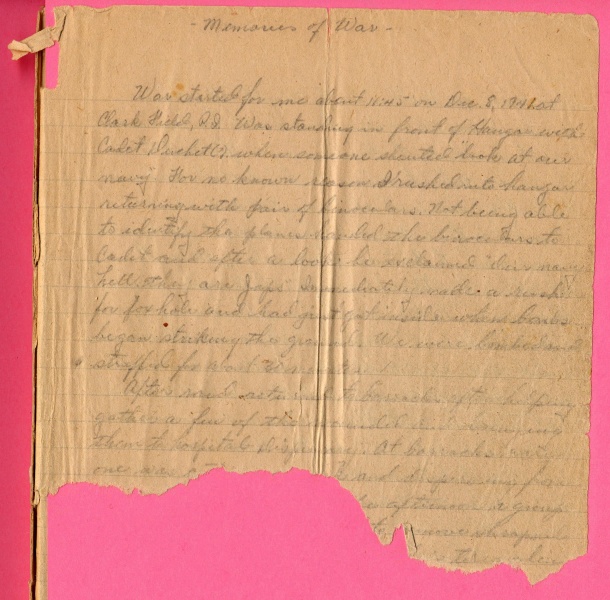 - Memories of War -
War started for me about 11:45 on Dec. 8, 1941 at
Clark Field, P.I. Was standing in front of Hangar with
Cadet when someone shouted "look at our
navy". For no known reason I rushed into hangar
returning with pair of binoculars. Not being able
to identify the planes handed the binoculars to
Cadet and after a look he exclaimed navy
hell they are Japs" Immediately made a rush
for fox hole and had just got inside when bombs
began striking the ground. We were bombed and
straffed for about minutes
After raid returned to barracks after helping
gather a few of the wounded and carrying
them to hospital dispensary. At barracks every
one was and from
afternoon a group
to remove